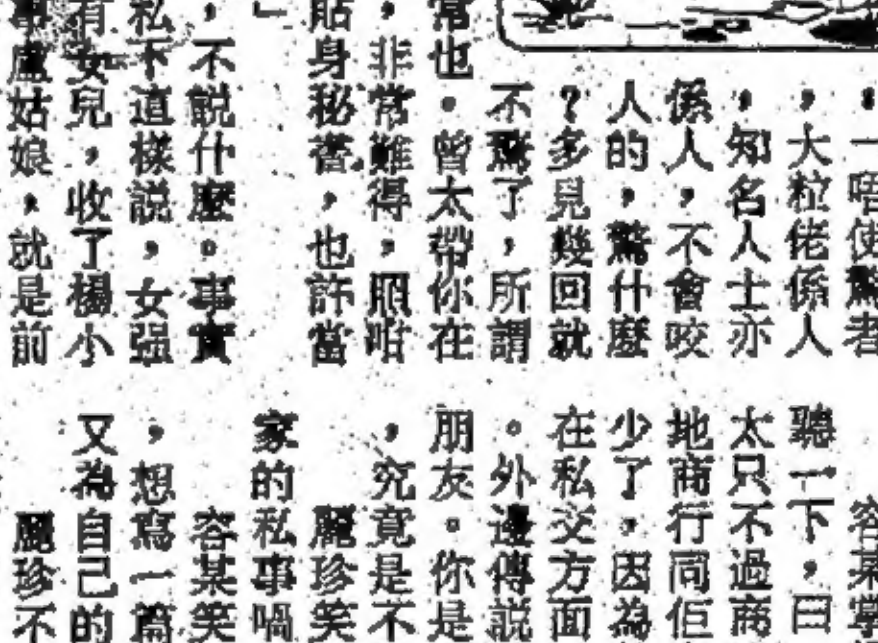 一唔使驚者
，大粒佬係人
，知名人士亦
係人，不會咬
人的，驚什麼
？多見幾回就
不驚了，所謂
常也。曾太帶你在
，非常難得，照咁
貼身秘書，也許當
」
，不說什麼。事實
私下這樣説，女强
有女兒，收了楊小
盧姑娘，就是前
容某
聽一下，曰
太只不過商
地商行同佢
少了，因為
在私交方面
。外邊傳説
朋友。你是
，究竟是不
麗珍笑
家的私事喎
容某笑
，想寫一篇
又為自己的
麗珍不